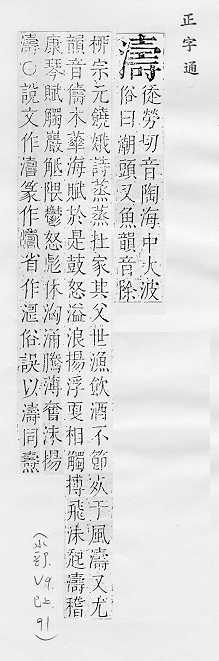 正字通
濤 徒勞切音陶海中大波
俗曰潮頭又魚韻音除
柳宗元饒娥詩蒸蒸在家其父世漁飲酒不節死于風濤又尤
韻音儔木華海賦於是鼓怒溢浪揚浮更相觸搏飛沬起濤嵇
康琴賦觸巖觝隈鬱怒彪休洶涌騰薄奮沬揚
濤○說文作篆作省作俗誤以濤同燾
(水部. V9. 巳上. 91)